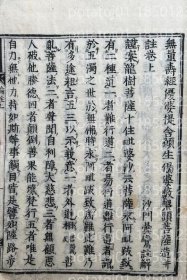 無量壽經優婆提舍願生偈婆藪槃頭菩薩造
註卷上
沙門曇鸞註解
謹案龍樹菩薩十住毘婆沙云菩薩求阿毘跋致
有二種道一者難行道二者易行道難行道者謂
於五濁之世於無佛時求阿毘跋致為難此難乃
有多途粗言五三以示義意一者外道相善
亂菩薩法二者聲聞自利障大慈悲三者無顧惡
人破他勝德四者顛倒善果能壞梵行五者唯是
自力無他力持如斯等事觸目皆是譬如陸路步